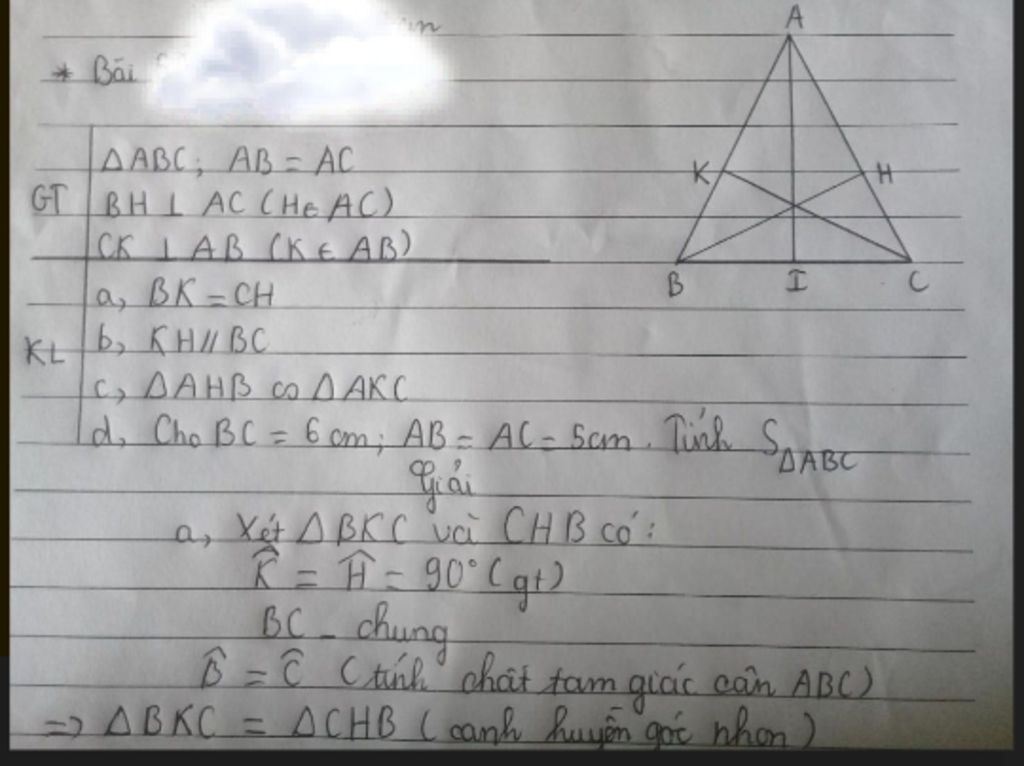 * Bài
A
K
H
B
I
C
GT
ΔABC; AB = AC
BH ⊥ AC (H∈ AC)
CK ⊥ AB (K ∈ AB)
KL
a, BK = CH
b, KH // BC
c, ΔAHB ∽ ΔAKC
d, Cho BC = 6 cm; AB = AC = 5cm. Tính S ΔABC
Giải
a, Xét ΔBKC và CHB có:
K̂ = Ĥ = 90° (gt)
BC - chung
B̂ = Ĉ (tính chất tam giác cân ABC)
=> ΔBKC = ΔCHB (cạnh huyền góc nhọn)